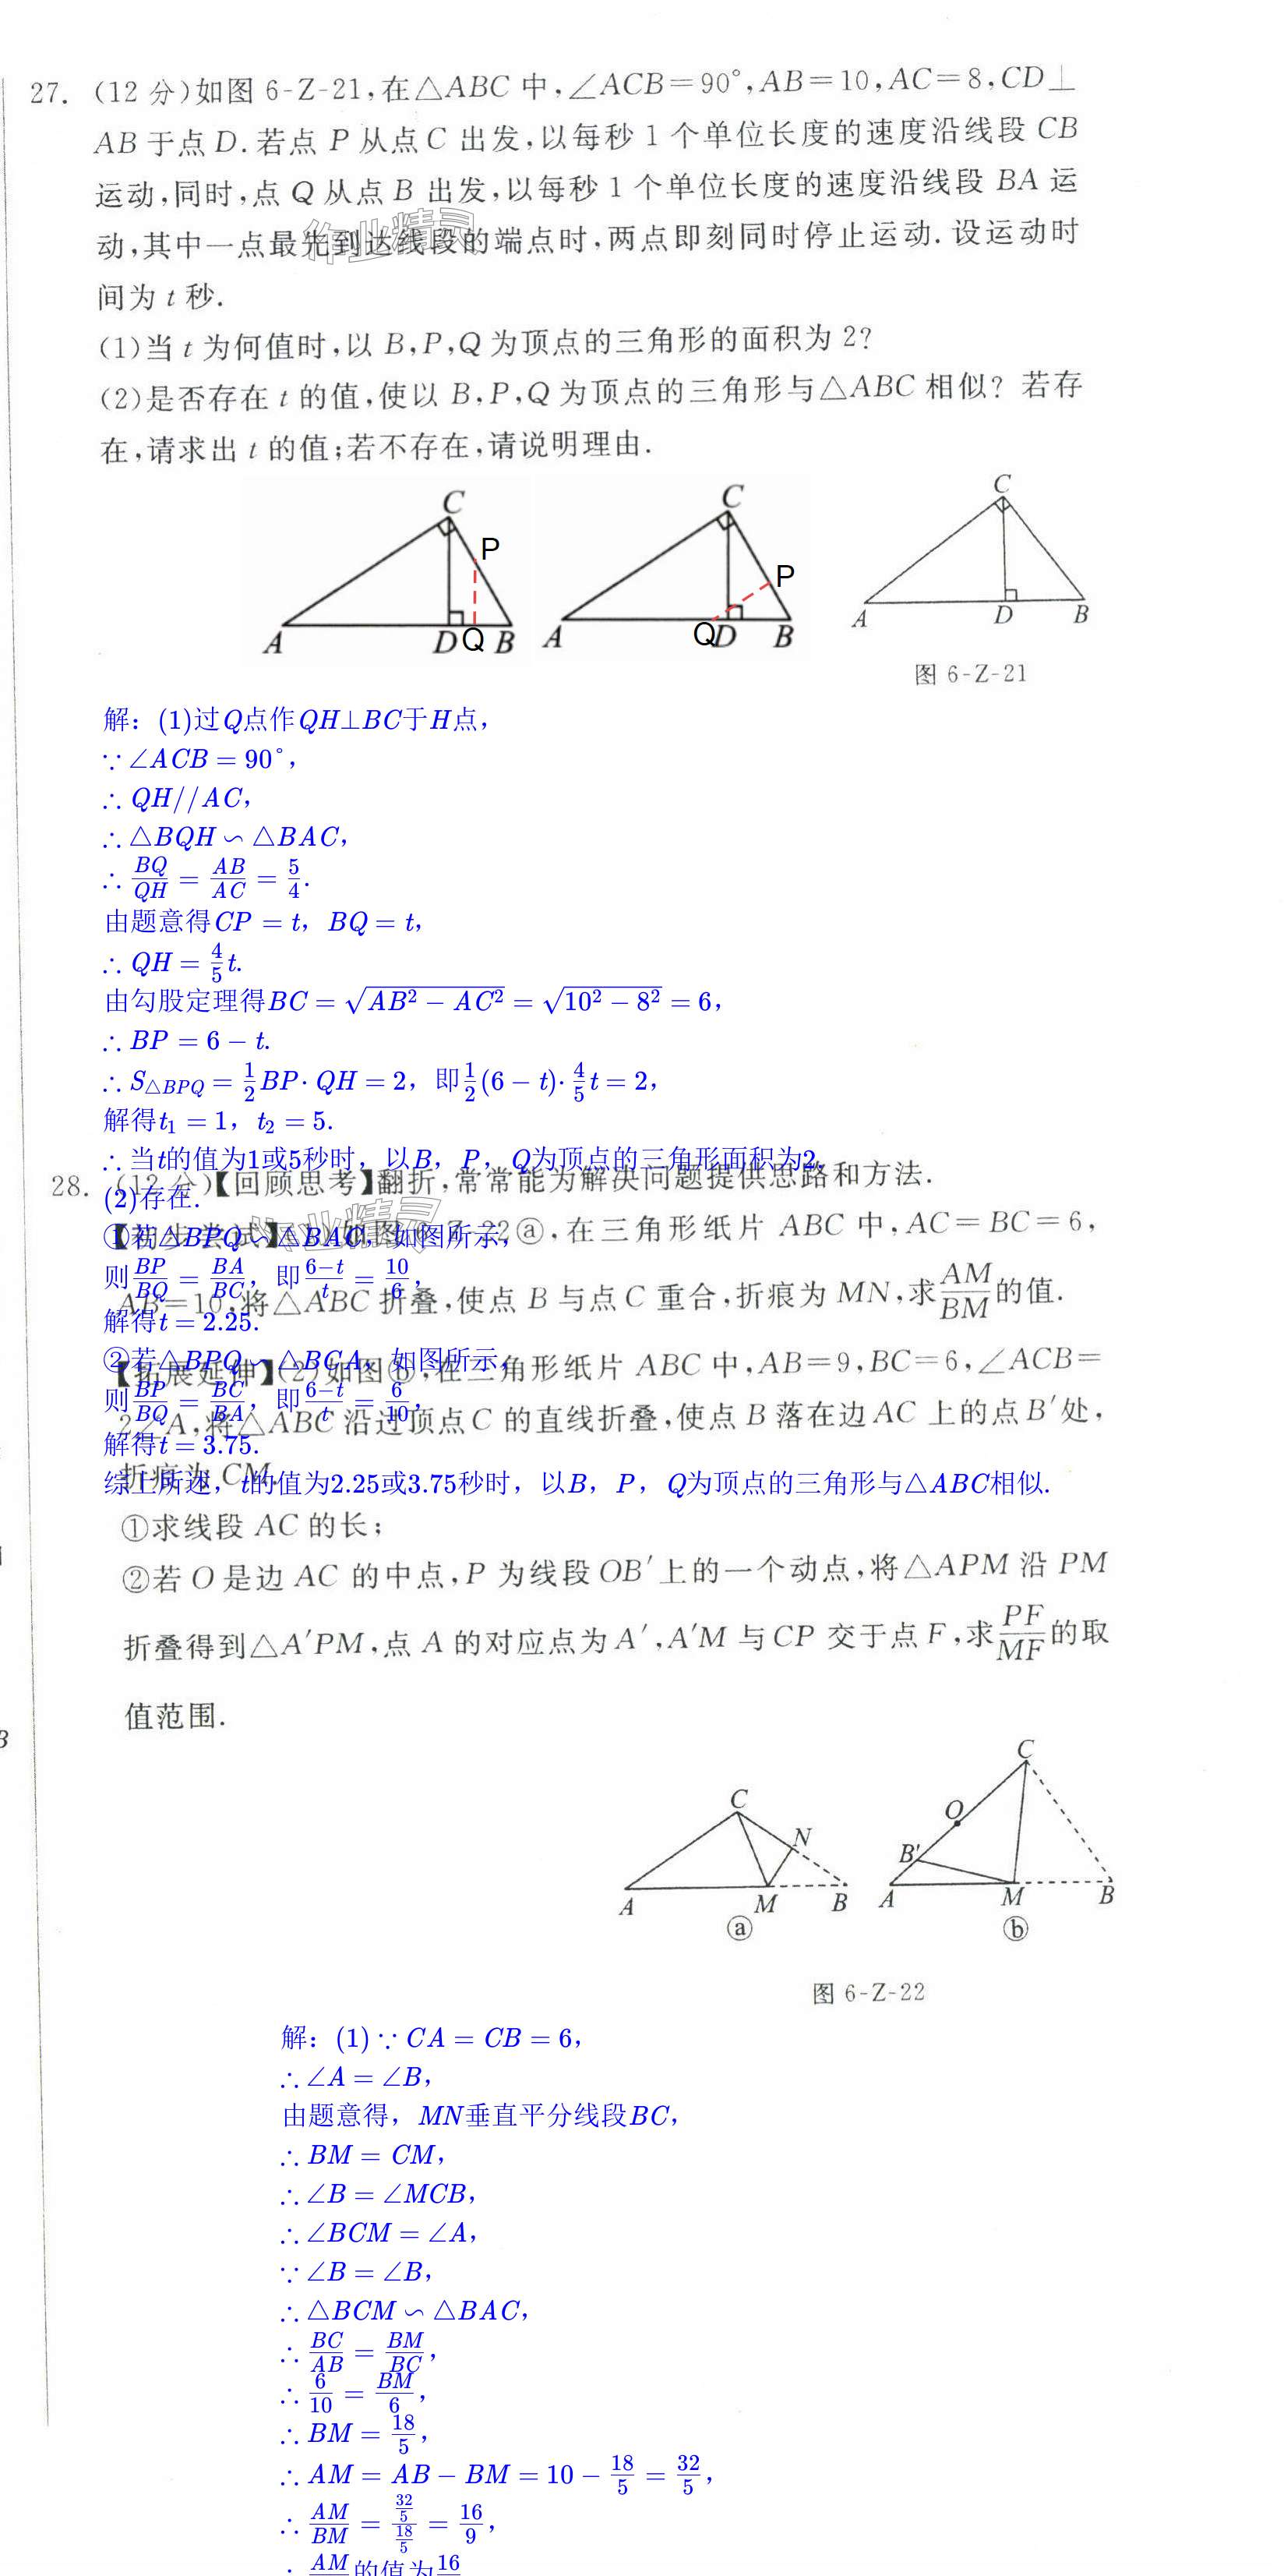 27. (12 分)如图 6-Z-21,在△ABC 中,∠ACB=90°,AB=10,AC=8,CD⊥
AB 于点 D.若点 P 从点 C 出发,以每秒 1 个单位长度的速度沿线段 CB
运动,同时,点 Q 从点 B 出发,以每秒 1 个单位长度的速度沿线段 BA 运
动,其中一点最先到达线段的端点时,两点即刻同时停止运动.设运动时
作业精灵
间为 t 秒.
(1)当 t 为何值时,以 B,P,Q 为顶点的三角形的面积为 2?
(2)是否存在 t 的值,使以 B,P,Q 为顶点的三角形与△ABC 相似? 若存
在,请求出 t 的值;若不存在,请说明理由.
C P A D Q B
C P A Q D B
C A D B
图 6-Z-21
解：(1)过Q点作QH⊥BC于H点，
∵∠ACB = 90°，
∴ QH//AC，
∴△BQH∽△BAC，
∴ BQ/QH = AB/AC = 5/4.
由题意得CP = t，BQ = t，
∴ QH = 4/5 t.
由勾股定理得BC = √(AB² − AC²) = √(10² − 8²) = 6，
∴ BP = 6 − t.
∴ S△BPQ = 1/2 BP · QH = 2，即 1/2 (6 − t)· 4/5 t = 2，
解得t₁ = 1，t₂ = 5.
∴ 当t的值为1或5秒时，以B，P，Q为顶点的三角形面积为2.
28. (12 分)【回顾思考】翻折,常常能为解决问题提供思路和方法.
(2)存在.
【初步尝试】(1)如图 6-Z-22ⓐ,在三角形纸片 ABC 中,AC=BC=6,
作业精灵
①若△BPQ∽△BAC，如图所示，
则 BP/BQ = BA/BC，即 (6−t)/t = 10/6，
AB=10,将△ABC 折叠,使点 B 与点 C 重合,折痕为 MN,求 AM/BM 的值.
解得t = 2.25.
②若△BPQ∽△BCA，如图所示，
【拓展延伸】(2)如图ⓑ,在三角形纸片 ABC 中,AB=9,BC=6,∠ACB=
则 BP/BQ = BC/BA，即 (6−t)/t = 6/10，
2∠A,将△ABC 沿过顶点 C 的直线折叠,使点 B 落在边 AC 上的点 B′处,
解得t = 3.75.
折痕为 CM.
综上所述，t的值为2.25或3.75秒时，以B，P，Q为顶点的三角形与△ABC相似.
①求线段 AC 的长;
②若 O 是边 AC 的中点,P 为线段 OB′上的一个动点,将△APM 沿 PM
折叠得到△A′PM,点 A 的对应点为 A′,A′M 与 CP 交于点 F,求 PF/MF 的取
值范围.
C N A M B ⓐ
C O B′ A M B ⓑ
图 6-Z-22
解：(1) ∵ CA = CB = 6，
∴∠A = ∠B，
由题意得，MN垂直平分线段BC，
∴ BM = CM，
∴∠B = ∠MCB，
∴∠BCM = ∠A，
∵∠B = ∠B，
∴△BCM∽△BAC，
∴ BC/AB = BM/BC，
∴ 6/10 = BM/6，
∴ BM = 18/5，
∴ AM = AB − BM = 10 − 18/5 = 32/5，
∴ AM/BM = (32/5)/(18/5) = 16/9，
∴ AM 的值为 16